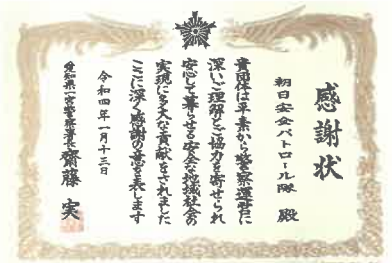 感謝状
朝日安全パトロール隊 殿
貴団体は平素から警察運営に
深いご理解とご協力を寄せられ
安心して暮らせる安全な地域社会の
実現に多大な貢献をされました
ここに深く感謝の意を表します
令和四年一月十三日
愛知県一宮警察署長 齋藤 実